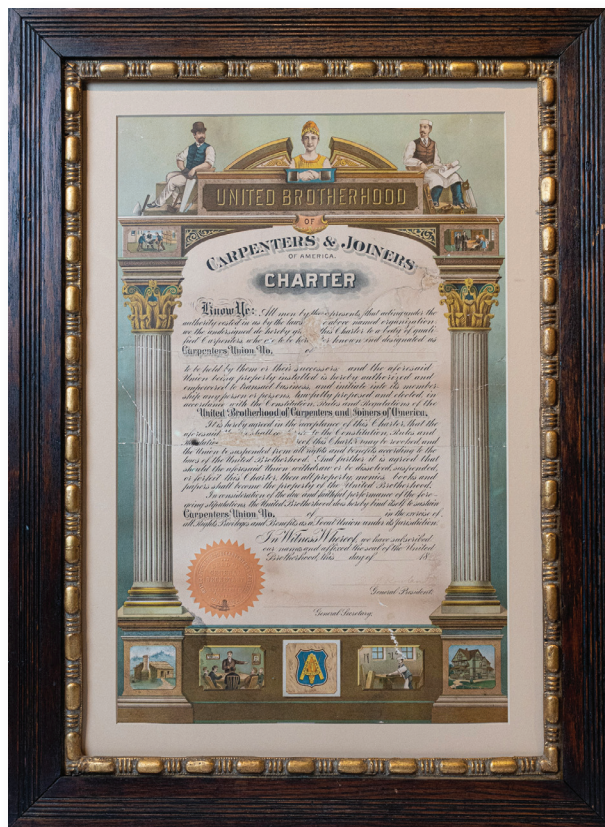 UNITED BROTHERHOOD
OF
CARPENTERS & JOINERS
OF AMERICA.
CHARTER
Know Ye: All men by these presents, that acting under the
authority vested in us by the laws above named organization
we the undersigned do hereby this Charter to a body of quali-
fied Carpenters who to be known and designated as
Carpenters' Union No. of
to be held by them or their successors and the aforesaid
Union being properly installed is hereby authorized and
empowered to transact business, and initiate into its member-
ship any person or persons, lawfully proposed and elected in
accordance with the Constitution, Rules and Regulations of the
United Brotherhood of Carpenters and Joiners of America.
It is hereby agreed in the acceptance of this Charter, that the
aforesaid shall to the Constitution, Rules and
of this Charter may be revoked, and
the Union be suspended from all rights and benefits according to the
laws of the United Brotherhood. And further it is agreed that
should the aforesaid Union withdraw or be dissolved, suspended,
or forfeit this Charter, then all property, monies, books and
papers shall become the property of the United Brotherhood.
In consideration of the due and faithful performance of the fore-
going stipulations, the United Brotherhood does hereby bind itself to sustain
Carpenters' Union No. of in the exercise of
all Rights, Privileges and Benefits as a Local Union under its jurisdiction.
In Witness Whereof, we have subscribed
our names and affixed the seal of the United
Brotherhood, this day of 18
General President.
General Secretary.